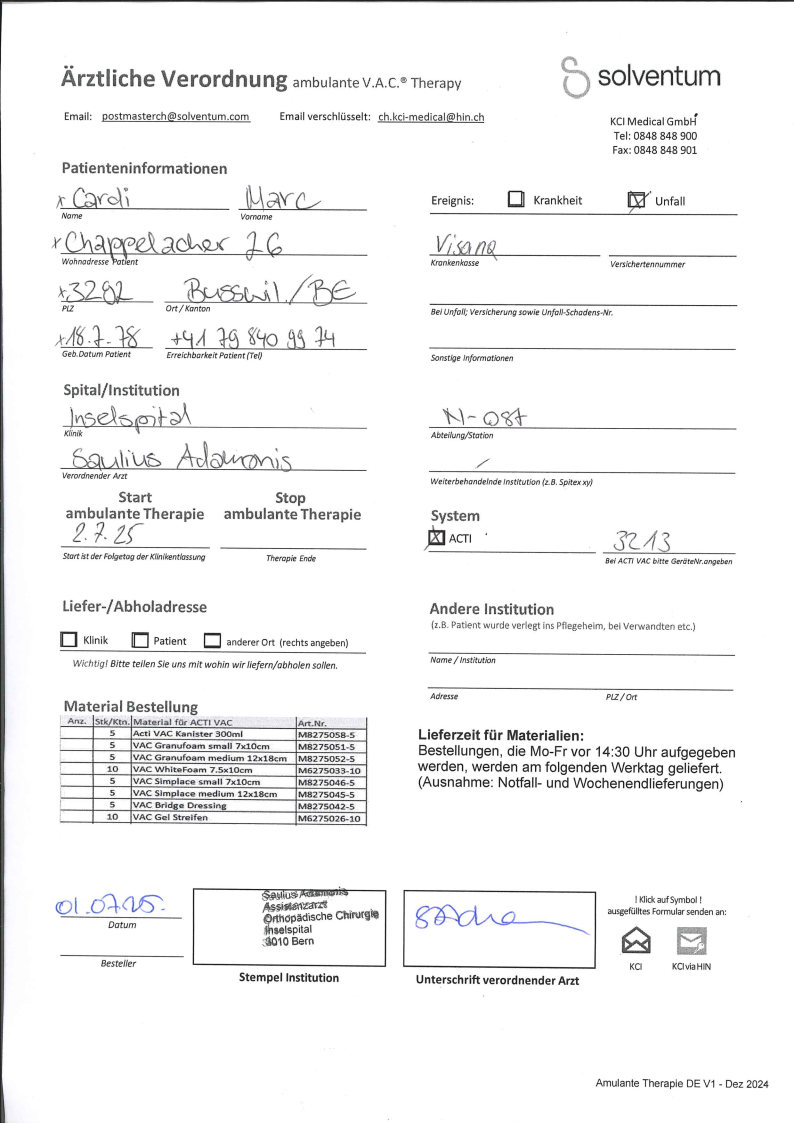 Ärztliche Verordnung ambulante V.A.C.® Therapy
solventum
Email: postmasterch@solventum.com Email verschlüsselt: ch.kci-medical@hin.ch
KCI Medical GmbH
Tel: 0848 848 900
Fax: 0848 848 901
Patienteninformationen
x Cardi Marc
Name Vorname
Ereignis: Krankheit Unfall
x Chappelacher 26
Wohnadresse Patient
Visana
Krankenkasse Versichertennummer
x 3292 Busswil/BE
PLZ Ort / Kanton
Bei Unfall; Versicherung sowie Unfall-Schadens-Nr.
x 18.7.78 +41 79 840 99 74
Geb.Datum Patient Erreichbarkeit Patient (Tel)
Sonstige Informationen
Spital/Institution
Inselspital
Klinik
N-087
Abteilung/Station
Saulius Adamonis
Verordnender Arzt
Weiterbehandelnde Institution (z.B. Spitex xy)
Start ambulante Therapie
Stop ambulante Therapie
2.7.25
Start ist der Folgetag der Klinikentlassung Therapie Ende
System
ACTI 3213
Bei ACTI VAC bitte GeräteNr.angeben
Liefer-/Abholadresse
Klinik Patient anderer Ort (rechts angeben)
Wichtig! Bitte teilen Sie uns mit wohin wir liefern/abholen sollen.
Andere Institution
(z.B. Patient wurde verlegt ins Pflegeheim, bei Verwandten etc.)
Name / Institution
Adresse PLZ / Ort
Material Bestellung
Anz. Stk/Ktn. Material für ACTI VAC Art.Nr.
5 Acti VAC Kanister 300ml M8275058-5
5 VAC Granufoam small 7x10cm M8275051-5
5 VAC Granufoam medium 12x18cm M8275052-5
10 VAC WhiteFoam 7.5x10cm M6275033-10
5 VAC Simplace small 7x10cm M8275046-5
5 VAC Simplace medium 12x18cm M8275045-5
5 VAC Bridge Dressing M8275042-5
10 VAC Gel Streifen M6275026-10
Lieferzeit für Materialien:
Bestellungen, die Mo-Fr vor 14:30 Uhr aufgegeben
werden, werden am folgenden Werktag geliefert.
(Ausnahme: Notfall- und Wochenendlieferungen)
01.07.25.
Datum
Besteller
Saulius Adamonis
Assistenzarzt
Orthopädische Chirurgie
Inselspital
3010 Bern
Stempel Institution
Unterschrift verordnender Arzt
! Klick auf Symbol !
ausgefülltes Formular senden an:
KCI KCI via HIN
Amulante Therapie DE V1 - Dez 2024